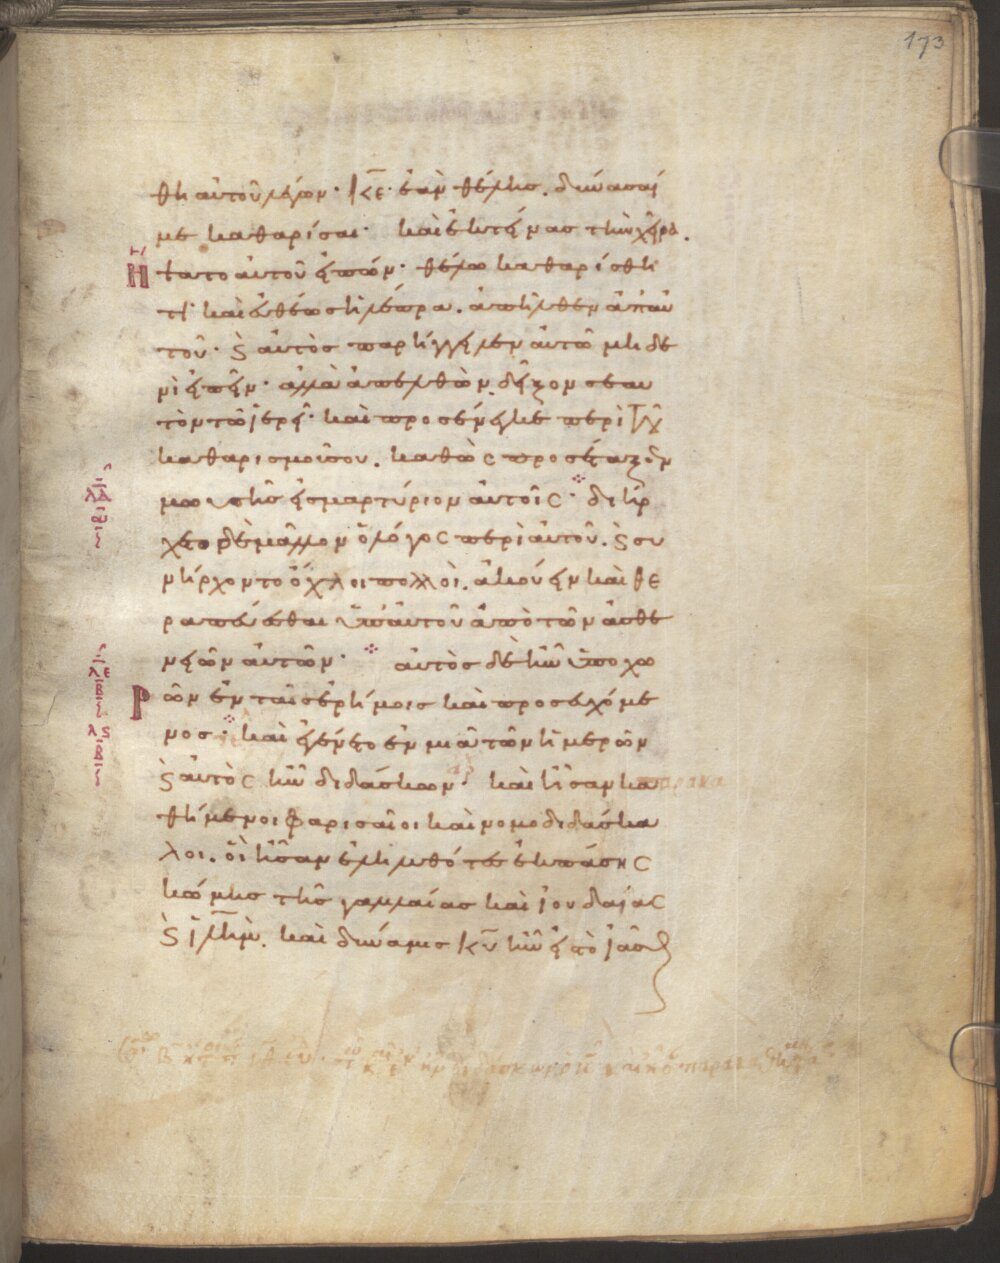 173
θη αὐτοῦ λέγων· κ̅ε̅ ἐὰν θέλης. δύνασαί
με καθαρίσαι· καὶ ἐκτείνας τὴν χεῖρα.
Ἥ
ψατο αὐτοῦ εἰπών· θέλω καθαρίσθη
τι· καὶ εὐθέως ἡ λέπρα. ἀπῆλθεν ἀπ' αὐ
τοῦ· ϛ αὐτὸς παρήγγειλεν αὐτῶ μηδε
νὶ εἰπεῖν· ἀλλὰ ἀπελθὼν δεῖξον σεαυ
τὸν τῶ ἱερεῖ· καὶ προσένεγκε περὶ τοῦ
καθαρισμοῦ σου. καθὼς προσέταξεν
μωυσῆς εἰς μαρτύριον αὐτοῖς· διήρ
χετο δὲ μᾶλλον ὁ λόγος περὶ αὐτοῦ. ϛ συ
νήρχοντο ὄχλοι πολλοὶ. ἀκούειν καὶ θε
ραπεύεσθαι ὑπ' αὐτοῦ ἀπὸ τῶν ἀσθε
νειῶν αὐτῶν· αὐτὸς δὲ ἦν ὑποχω
ρ
ῶν ἐν ταῖς ἐρήμοις καὶ προσευχόμε
νος· καὶ ἐγένετο ἐν μιᾶ τῶν ἡμερῶν
ϛ αὐτὸς ἦν διδάσκων· καὶ ἦσαν κα
θήμενοι φαρισαῖοι καὶ νομοδιδάσκα
λοι. οἳ ἦσαν ἐληλυθότες ἐκ πάσης
κώμης τῆς γαλιλαίας καὶ ἰουδαίας
ϛ ἰ̅λ̅ή̅μ̅. καὶ δύναμις κ̅υ̅ ἦν εἰς τὸ ἰᾶσ